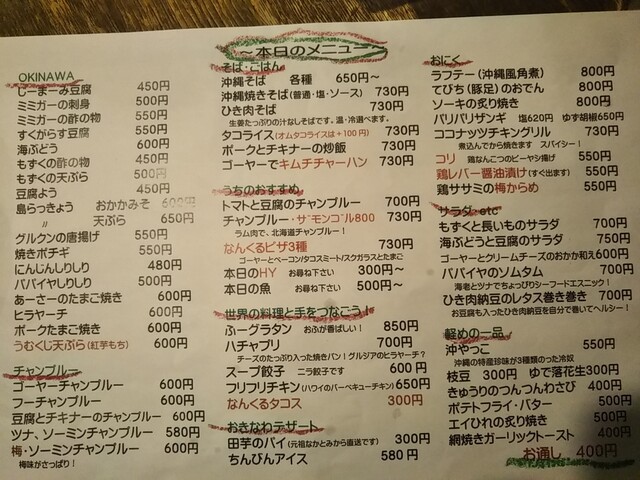 ～本日のメニュー
OKINAWA
じーまーみ豆腐 450円
ミミガーの刺身 500円
ミミガーの酢の物 550円
すくがらす豆腐 550円
海ぶどう 600円
もずくの酢の物 450円
もずくの天ぷら 500円
豆腐よう 450円
島らっきょう おかかみそ 600円
〃 天ぷら 650円
グルクンの唐揚げ 550円
焼きポチギ 550円
にんじんしりしり 480円
パパイヤしりしり 550円
あーさーのたまご焼き 600円
ヒラヤーチ 600円
ポークたまご焼き 600円
うむくじ天ぷら(紅芋もち) 600円
チャンプルー
ゴーヤーチャンプルー 600円
フーチャンプルー 600円
豆腐とチキナーのチャンプルー 600円
ツナ、ソーミンチャンプルー 580円
梅・ソーミンチャンプルー 600円
梅味がさっぱり！
そば・ごはん
沖縄そば 各種 650円～
沖縄焼きそば(普通・塩・ソース) 730円
ひき肉そば 730円
生姜たっぷりの汁なしそばです。温・冷選べます。
タコライス(オムタコライスは+100円) 730円
ポークとチキナーの炒飯 730円
ゴーヤーでキムチチャーハン 730円
うちのおすすめ
トマトと豆腐のチャンプルー 700円
チャンプルー・ザーモンゴール800 730円
ラム肉で、北海道チャンプルー！
なんくるピザ3種 730円
ゴーヤーとベーコン/タコスミート/スクガラスとたまご
本日のHY お尋ね下さい 300円～
本日の魚 お尋ね下さい 500円～
世界の料理と手をつなごう！
ふーグラタン おふが香ばしい！ 850円
ハチャプリ 700円
チーズのたっぷり入った焼きパン！グルジアのヒラヤーチ？
スープ餃子 ニラ餃子です 600円
フリフリチキン(ハワイのバーベキューチキン) 650円
なんくるタコス 300円
おきなわデザート
田芋のパイ(元祖なかとみから直送です) 300円
ちんびんアイス 580円
おにく
ラフテー(沖縄風角煮) 800円
てびち(豚足)のおでん 800円
ソーキの炙り焼き 800円
パリパリザンギ 塩620円 ゆず胡椒650円
ココナッツチキングリル 730円
煮込んでから焼きます スパイシー！
コリ 鶏なんこつのピーヤシ揚げ 550円
鶏レバー醤油漬け(すぐ出ます) 550円
鶏ササミの梅からめ 550円
サラダ etc
もずくと長いものサラダ 700円
海ぶどうと豆腐のサラダ 750円
ゴーヤーとクリームチーズのおかか和え 600円
パパイヤのソムタム 700円
海老とツナでちょっぴりシーフードエスニック！
ひき肉納豆のレタス巻き巻き 700円
お豆腐も入ったひき肉納豆を自分で巻いてヘルシー！
軽めの一品
沖やっこ 550円
沖縄の特産珍味が3種類のった冷奴
枝豆 300円 ゆで落花生300円
きゅうりのつんつんわさび 400円
ポテトフライ・バター 500円
エイひれの炙り焼き 500円
網焼きガーリックトースト 400円
お通し 400円